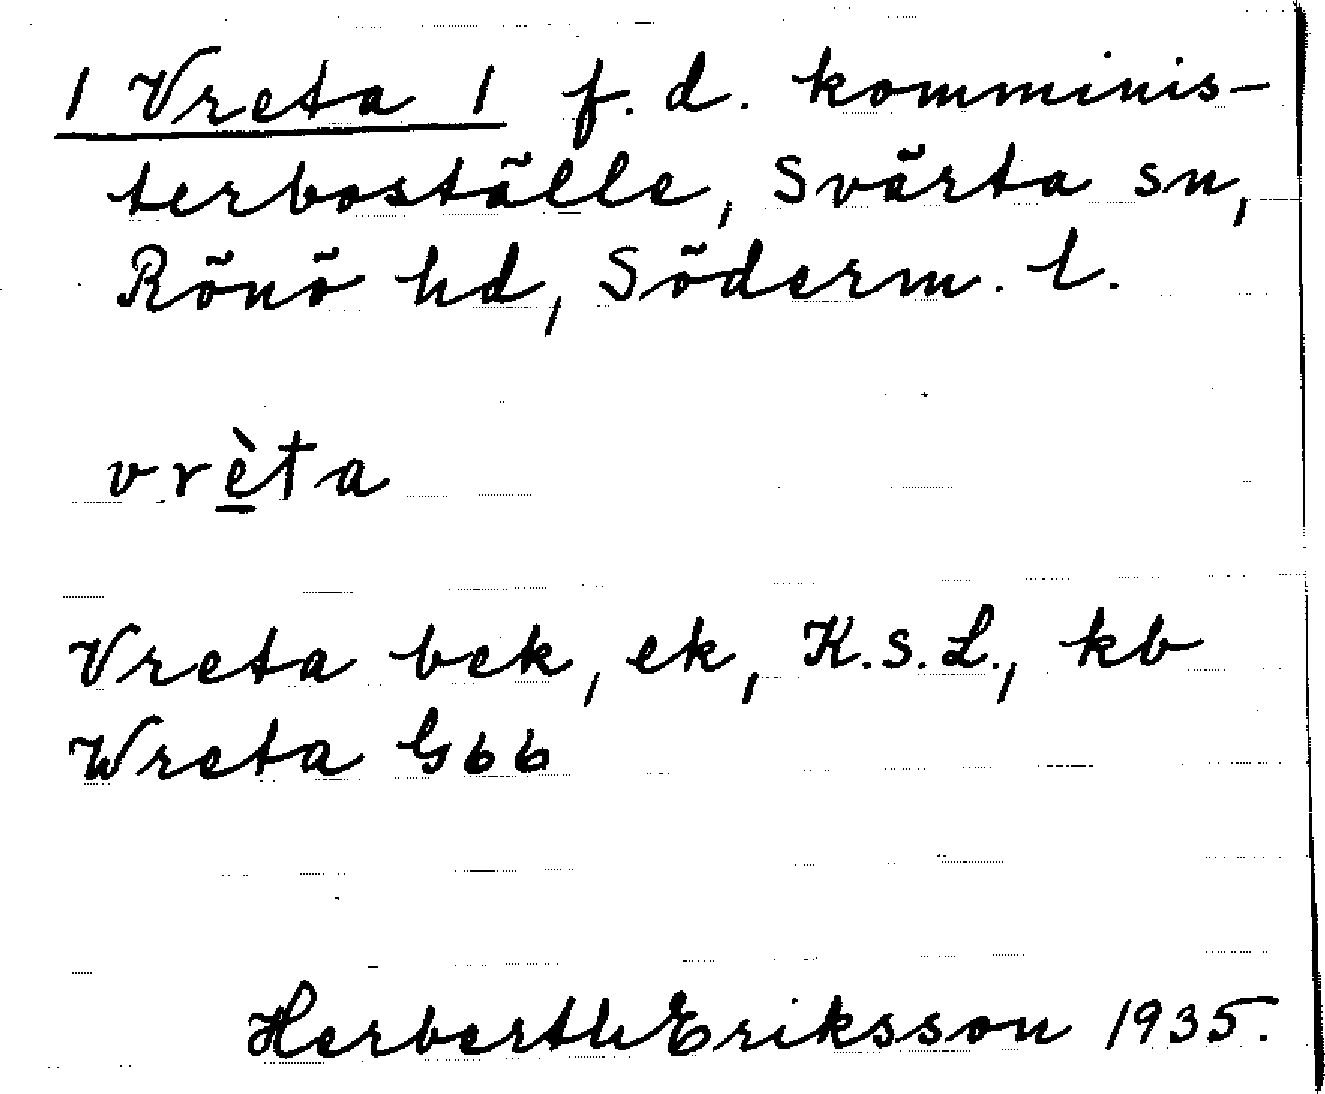 1 Vreta 1 f. d. komminis-
terboställe, Svärta sn,
Rönö hd, Söderm. l.
vrèta
Vreta bek, ek, K.S.L., kb
Wreta G66
Herberth Eriksson 1935.